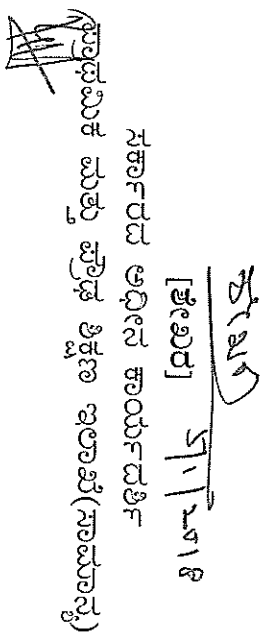 [ಶೇಖರ]
ಸರ್ಕಾರದ ಅಧೀನ ಕಾರ್ಯದರ್ಶಿ
ಪ್ರಾಥಮಿಕ ಮತ್ತು ಪ್ರೌಢ ಶಿಕ್ಷಣ ಇಲಾಖೆ(ಸಾಮಾನ್ಯ)